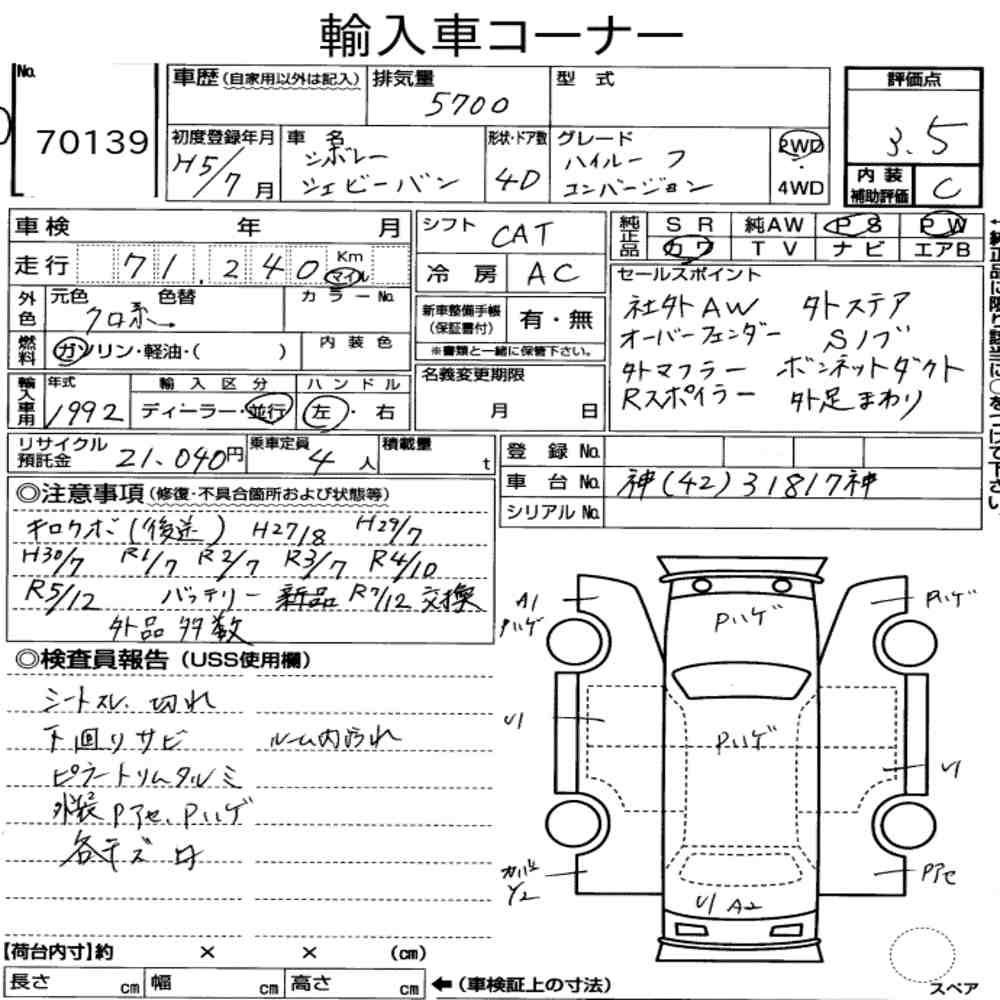 輸入車コーナー
No.
70139
車歴(自家用以外は記入)
排気量
5700
型式
評価点
3.5
初度登録年月
H5/7月
車名
シボレー
シェビーバン
形状・ドア数
4D
グレード
ハイルーフ
コンバージョン
2WD
・
4WD
内装
補助評価
C
車検 年 月
走行 71.240 Km マイル
シフト CAT
冷房 AC
純正品 SR 純AW PS PW
カワ TV ナビ エアB
←純正品に限り該当に○をつけて下さい。
外色 元色 色替 カラーNo.
クロ系→
燃料 ガソリン・軽油・( )
内装色
新車整備手帳
(保証書付)
有・無
※書類と一緒に保管下さい。
セールスポイント
社外AW 外ステア
オーバーフェンダー Sノブ
外マフラー ボンネットダクト
Rスポイラー 外足まわり
輸入車用 年式 1992
輸入区分
ディーラー・並行
ハンドル
左・右
名義変更期限
月 日
リサイクル
預託金 21.040円
乗車定員 4人
積載量 t
登録No.
車台No. 神(42)31817神
シリアルNo.
◎注意事項(修復・不具合箇所および状態等)
キロクボ(後送) H27/8 H29/7
H30/7 R1/7 R2/7 R3/7 R4/10
R5/12 バッテリー新品R7/12交換
外品多数
◎検査員報告(USS使用欄)
シートスレ、切れ
下回りサビ ルーム内汚れ
ピラートリムタルミ
外装Pアセ、Pハゲ
各キズ有
A1
Pハゲ
Pハゲ
Pハゲ
U1
Pハゲ
U1
Y2
Pアセ
U1 A2
スペア
【荷台内寸】約 × × (cm)
長さ cm 幅 cm 高さ cm ←(車検証上の寸法)